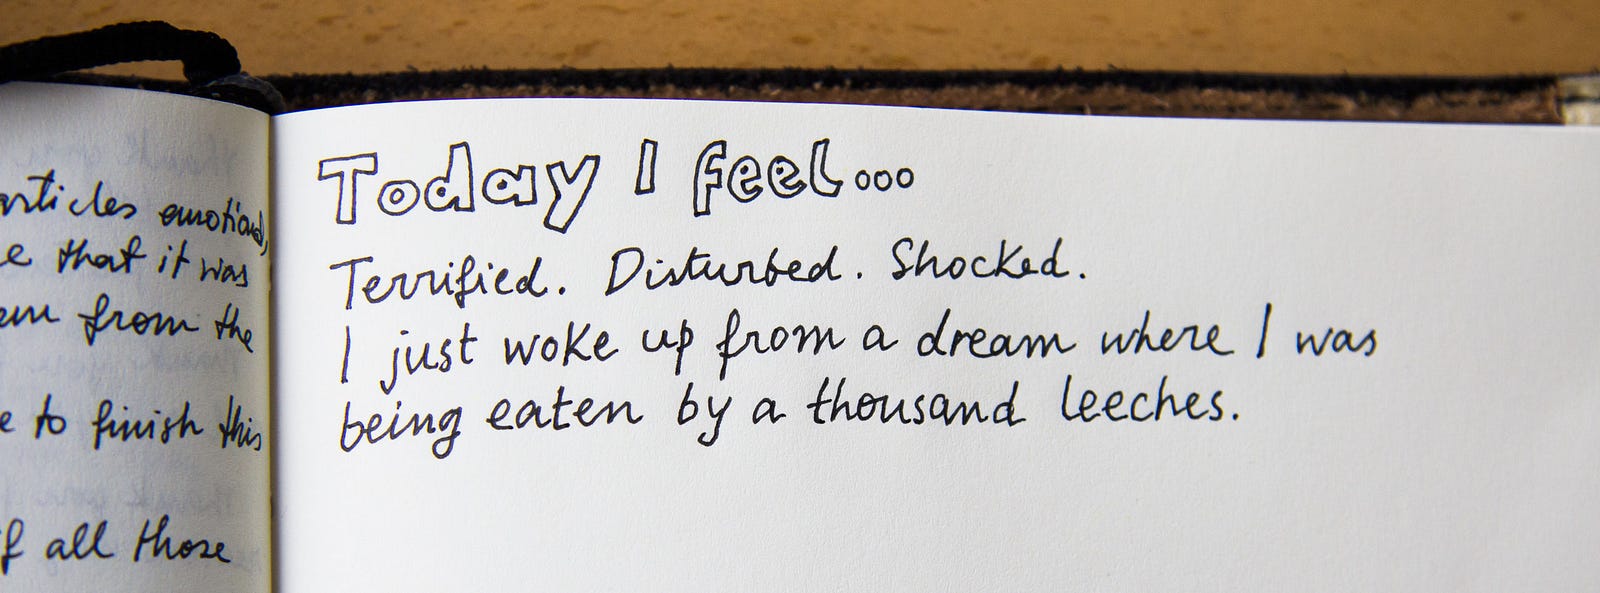 articles emotional,
that it was
from the
to finish this
all those
Today I feel...
Terrified. Disturbed. Shocked.
I just woke up from a dream where I was
being eaten by a thousand leeches.